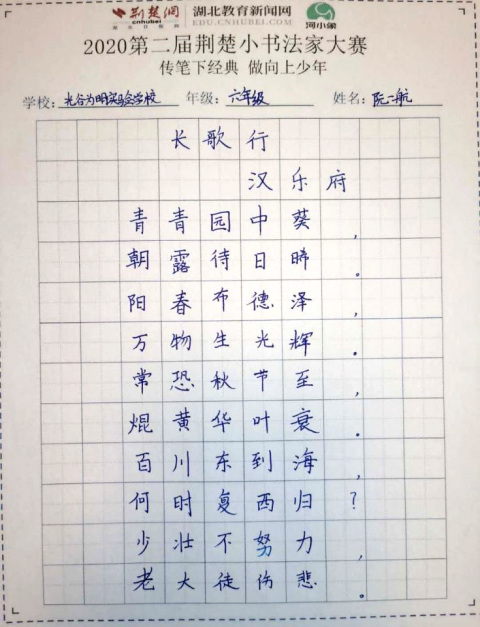 荆楚网 湖北教育新闻网 河小象
cnhubei EDU.CNHUBEI.COM
2020第二届荆楚小书法家大赛
传笔下经典 做向上少年
学校：光谷为明实验学校 年级：六年级 姓名：阮一航
长歌行
汉乐府
青青园中葵，
朝露待日晞。
阳春布德泽，
万物生光辉。
常恐秋节至，
焜黄华叶衰。
百川东到海，
何时复西归？
少壮不努力，
老大徒伤悲。